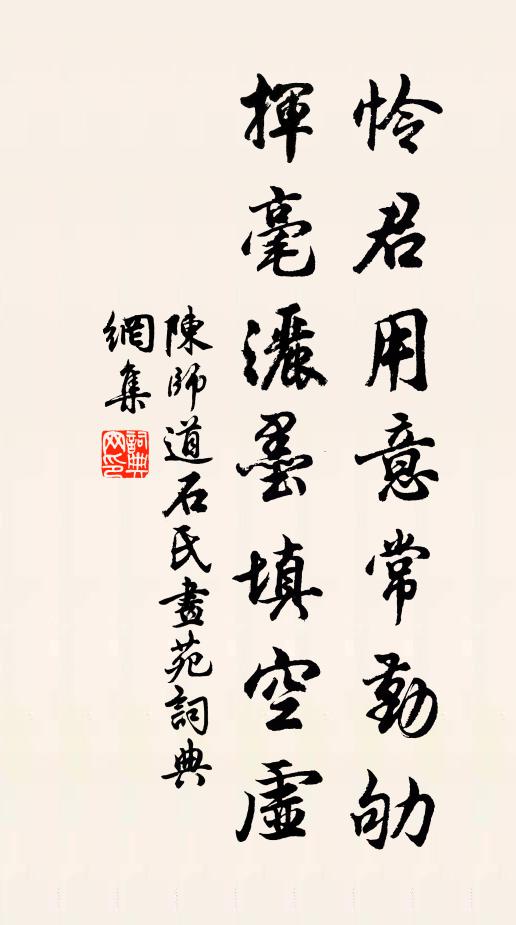 怜君用意常勤劬
揮毫灑墨填空虛
陳師道石氏畫苑詞典
網集
詞典
网印